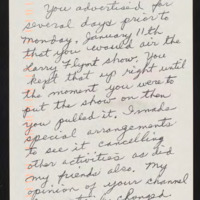 You advertised for
several days prior to
Monday, January 11th
that you would air the
Larry Flynt show. You
kept that up right until
the moment you were to
put the show on then
you pulled it. I made
special arrangements
to see it cancelling
other activities as did
my friends also. My
opinion of your channel
changed